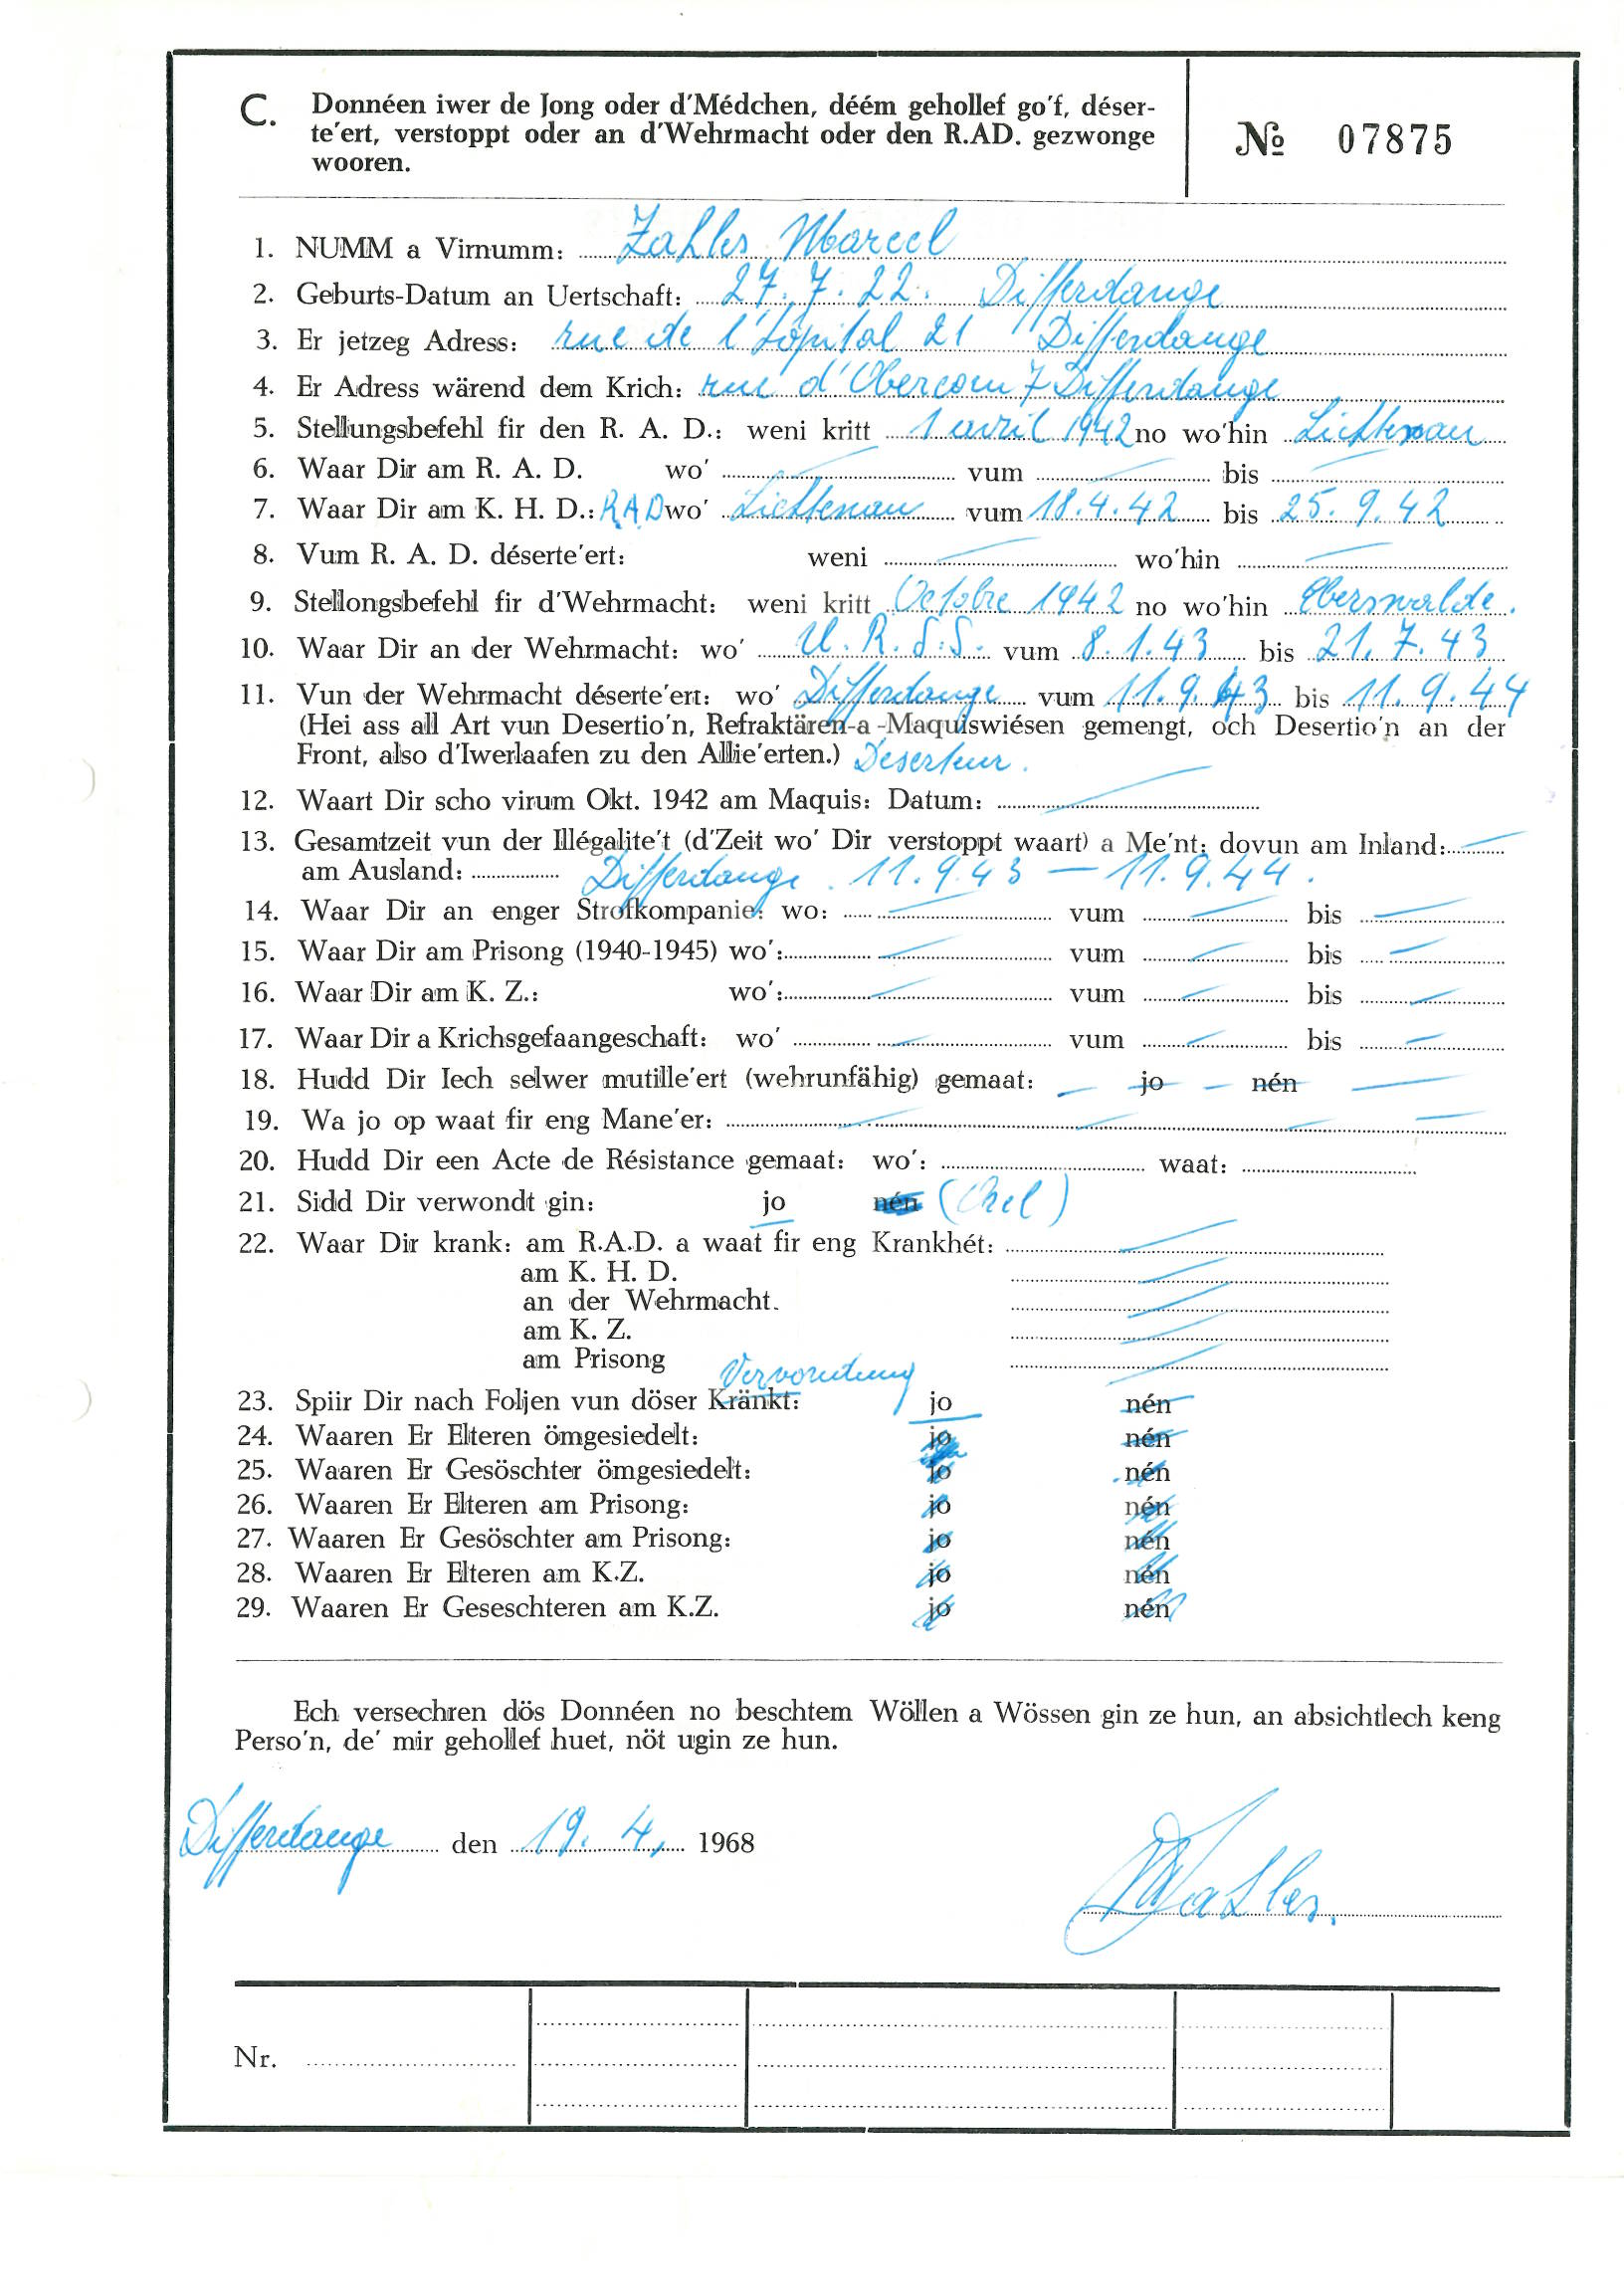 C. Donnéen iwer de Jong oder d'Médchen, déém gehollef go'f, déser-
te'ert, verstoppt oder an d'Wehrmacht oder den R.AD. gezwonge
wooren.
№ 07875
1. NUMM a Virnumm: Zahles Marcel
2. Geburts-Datum an Uertschaft: 27.7.22. Differdange
3. Er jetzeg Adress: rue de l'hôpital 21 Differdange
4. Er Adress wärend dem Krich: rue d'Obercorn 7 Differdange
5. Stellungsbefehl fir den R. A. D.: weni kritt 1 avril 1942 no wo'hin Lichtenau
6. Waar Dir am R. A. D. wo' vum bis
7. Waar Dir am K. H. D.: RAD wo' Lichtenau vum 18.4.42 bis 25.9.42
8. Vum R. A. D. déserte'ert: weni wo'hin
9. Stellongsbefehl fir d'Wehrmacht: weni kritt Octobre 1942 no wo'hin Eberswalde.
10. Waar Dir an der Wehrmacht: wo' U.R.S.S. vum 8.1.43 bis 21.7.43
11. Vun der Wehrmacht déserte'ert: wo' Differdange vum 11.9.43 bis 11.9.44
(Hei ass all Art vun Desertio'n, Refraktären-a-Maquiswiésen gemengt, och Desertio'n an der
Front, also d'Iwerlaafen zu den Allie'erten.) Deserteur.
12. Waart Dir scho virum Okt. 1942 am Maquis: Datum:
13. Gesamtzeit vun der Illégalite't (d'Zeit wo' Dir verstoppt waart) a Me'nt: dovun am Inland:
am Ausland: Differdange. 11.9.43 — 11.9.44.
14. Waar Dir an enger Strofkompanie: wo: vum bis
15. Waar Dir am Prisong (1940-1945) wo': vum bis
16. Waar Dir am K. Z.: wo': vum bis
17. Waar Dir a Krichsgefaangeschaft: wo' vum bis
18. Hudd Dir Iech selwer mutille'ert (wehrunfähig) gemaat: jo nén
19. Wa jo op waat fir eng Mane'er:
20. Hudd Dir een Acte de Résistance gemaat: wo': waat:
21. Sidd Dir verwondt gin: jo nén (Orel)
22. Waar Dir krank: am R.A.D. a waat fir eng Krankhét:
am K. H. D.
an der Wehrmacht.
am K. Z.
am Prisong
Verwondung
23. Spiir Dir nach Foljen vun döser Kränkt: jo nén
24. Waaren Er Elteren ömgesiedelt: jo nén
25. Waaren Er Gesöschter ömgesiedelt: jo nén
26. Waaren Er Elteren am Prisong: jo nén
27. Waaren Er Gesöschter am Prisong: jo nén
28. Waaren Er Elteren am K.Z. jo nén
29. Waaren Er Geseschteren am K.Z. jo nén
Ech versechren dös Donnéen no beschtem Wöllen a Wössen gin ze hun, an absichtlech keng
Perso'n, de' mir gehollef huet, nöt ugin ze hun.
Differdange den 19. 4. 1968
MZahles.
Nr.